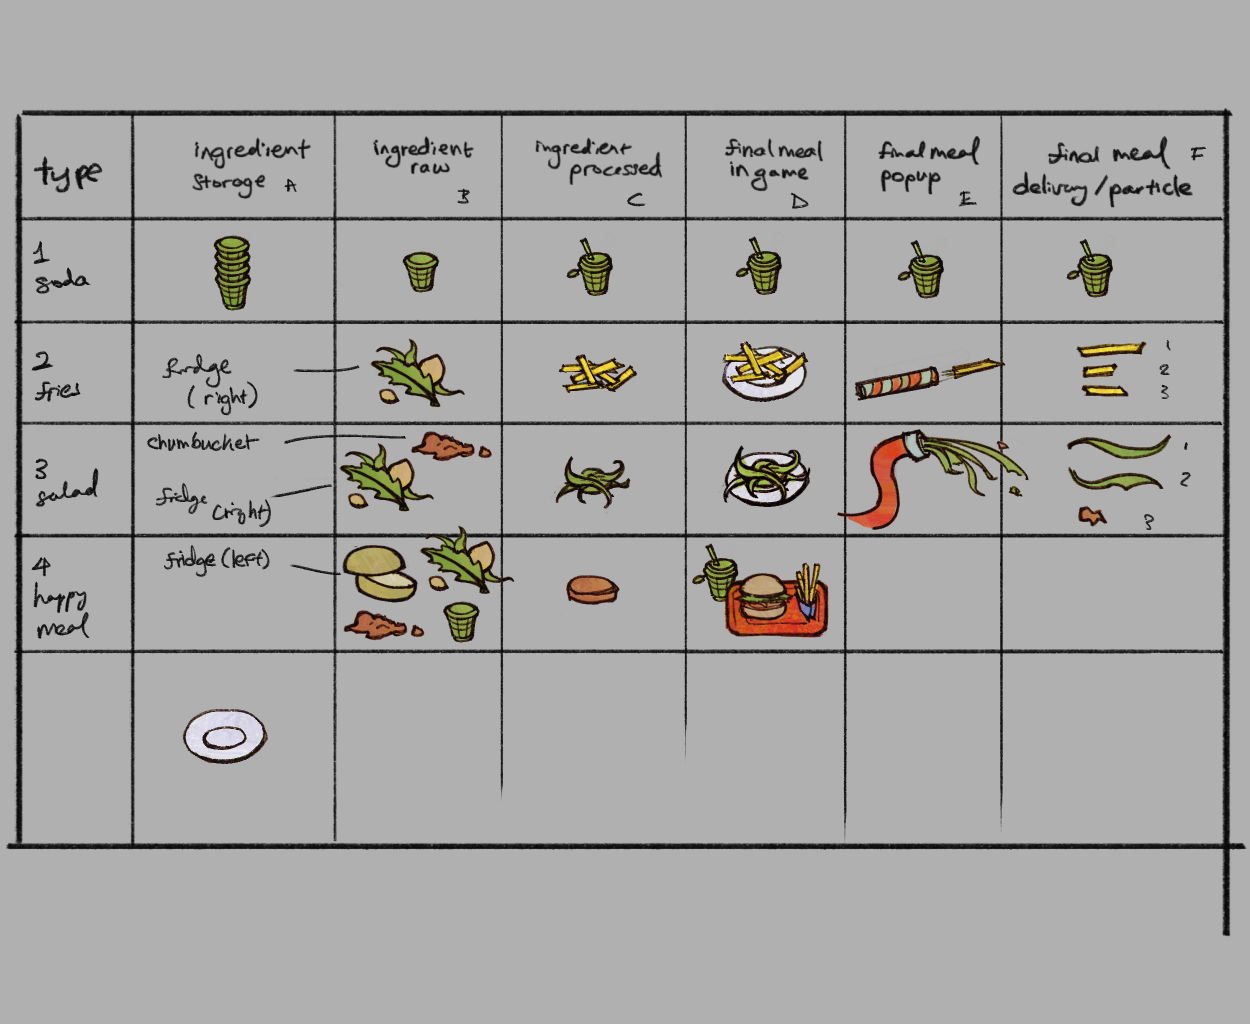 type
ingredient
storage A
ingredient
raw
B
ingredient
processed
C
final meal
in game
D
final meal
popup
E
final meal F
delivery/particle
1
soda
2
fries
fridge
(right)
1
2
3
3
salad
chumbucket
fridge
(right)
1
2
3
4
happy
meal
fridge (left)